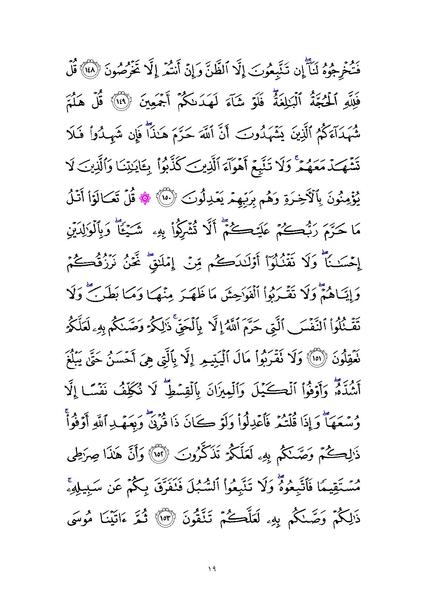 فَتُخْرِجُوهُ لَنَآ ۖ إِن تَتَّبِعُونَ إِلَّا ٱلظَّنَّ وَإِنْ أَنتُمْ إِلَّا تَخْرُصُونَ ١٤٨ قُلْ
فَلِلَّهِ ٱلْحُجَّةُ ٱلْبَٰلِغَةُ ۖ فَلَوْ شَآءَ لَهَدَىٰكُمْ أَجْمَعِينَ ١٤٩ قُلْ هَلُمَّ
شُهَدَآءَكُمُ ٱلَّذِينَ يَشْهَدُونَ أَنَّ ٱللَّهَ حَرَّمَ هَٰذَا ۖ فَإِن شَهِدُوا۟ فَلَا
تَشْهَدْ مَعَهُمْ ۚ وَلَا تَتَّبِعْ أَهْوَآءَ ٱلَّذِينَ كَذَّبُوا۟ بِـَٔايَٰتِنَا وَٱلَّذِينَ لَا
يُؤْمِنُونَ بِٱلْـَٔاخِرَةِ وَهُم بِرَبِّهِمْ يَعْدِلُونَ ١٥٠ ۞ قُلْ تَعَالَوْا۟ أَتْلُ
مَا حَرَّمَ رَبُّكُمْ عَلَيْكُمْ ۖ أَلَّا تُشْرِكُوا۟ بِهِۦ شَيْـًٔا ۖ وَبِٱلْوَٰلِدَيْنِ
إِحْسَٰنًا ۖ وَلَا تَقْتُلُوٓا۟ أَوْلَٰدَكُم مِّنْ إِمْلَٰقٍ ۖ نَّحْنُ نَرْزُقُكُمْ
وَإِيَّاهُمْ ۖ وَلَا تَقْرَبُوا۟ ٱلْفَوَٰحِشَ مَا ظَهَرَ مِنْهَا وَمَا بَطَنَ ۖ وَلَا
تَقْتُلُوا۟ ٱلنَّفْسَ ٱلَّتِى حَرَّمَ ٱللَّهُ إِلَّا بِٱلْحَقِّ ۚ ذَٰلِكُمْ وَصَّىٰكُم بِهِۦ لَعَلَّكُمْ
تَعْقِلُونَ ١٥١ وَلَا تَقْرَبُوا۟ مَالَ ٱلْيَتِيمِ إِلَّا بِٱلَّتِى هِىَ أَحْسَنُ حَتَّىٰ يَبْلُغَ
أَشُدَّهُۥ ۖ وَأَوْفُوا۟ ٱلْكَيْلَ وَٱلْمِيزَانَ بِٱلْقِسْطِ ۖ لَا نُكَلِّفُ نَفْسًا إِلَّا
وُسْعَهَا ۖ وَإِذَا قُلْتُمْ فَٱعْدِلُوا۟ وَلَوْ كَانَ ذَا قُرْبَىٰ ۖ وَبِعَهْدِ ٱللَّهِ أَوْفُوا۟ ۚ
ذَٰلِكُمْ وَصَّىٰكُم بِهِۦ لَعَلَّكُمْ تَذَكَّرُونَ ١٥٢ وَأَنَّ هَٰذَا صِرَٰطِى
مُسْتَقِيمًا فَٱتَّبِعُوهُ ۖ وَلَا تَتَّبِعُوا۟ ٱلسُّبُلَ فَتَفَرَّقَ بِكُمْ عَن سَبِيلِهِۦ ۚ
ذَٰلِكُمْ وَصَّىٰكُم بِهِۦ لَعَلَّكُمْ تَتَّقُونَ ١٥٣ ثُمَّ ءَاتَيْنَا مُوسَى
١٩